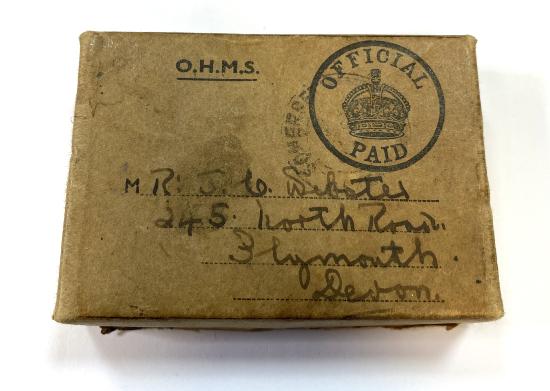 O.H.M.S.
OFFICIAL
PAID
MR. J. C. Webster
245 North Road.
Plymouth.
Devon.